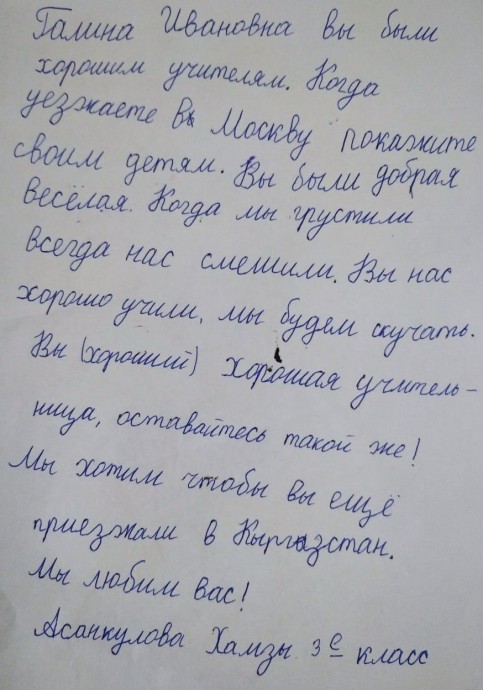 Галина Ивановна вы были
хорошим учителям. Когда
уезжаете в Москву покажите
своим детям. Вы были добрая
весёлая. Когда мы грустили
всегда нас смешили. Вы нас
хорошо учили, мы будем скучать.
Вы (хороший) хорошая учитель-
ница, оставайтесь такой же!
Мы хотим чтобы вы ещё
приезжали в Кыргызстан.
Мы любим вас!
Асанкулова Хамзы 3 е класс